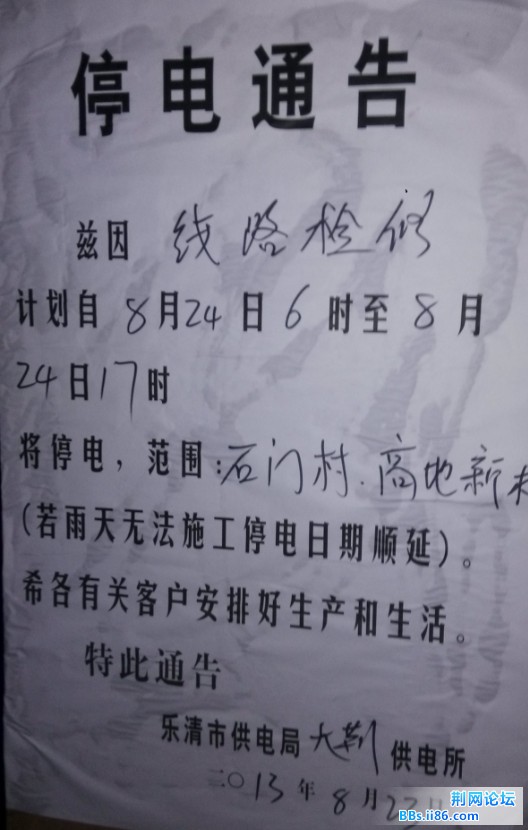 停电通告
兹因 线路检修
计划自 8月24日6时至8月
24日17时
将停电，范围：石门村、高地新村
（若雨天无法施工停电日期顺延）。
希各有关客户安排好生产和生活。
特此通告
乐清市供电局大荆供电所
二〇13年8月23日
荆网论坛
BBs.ii86.com